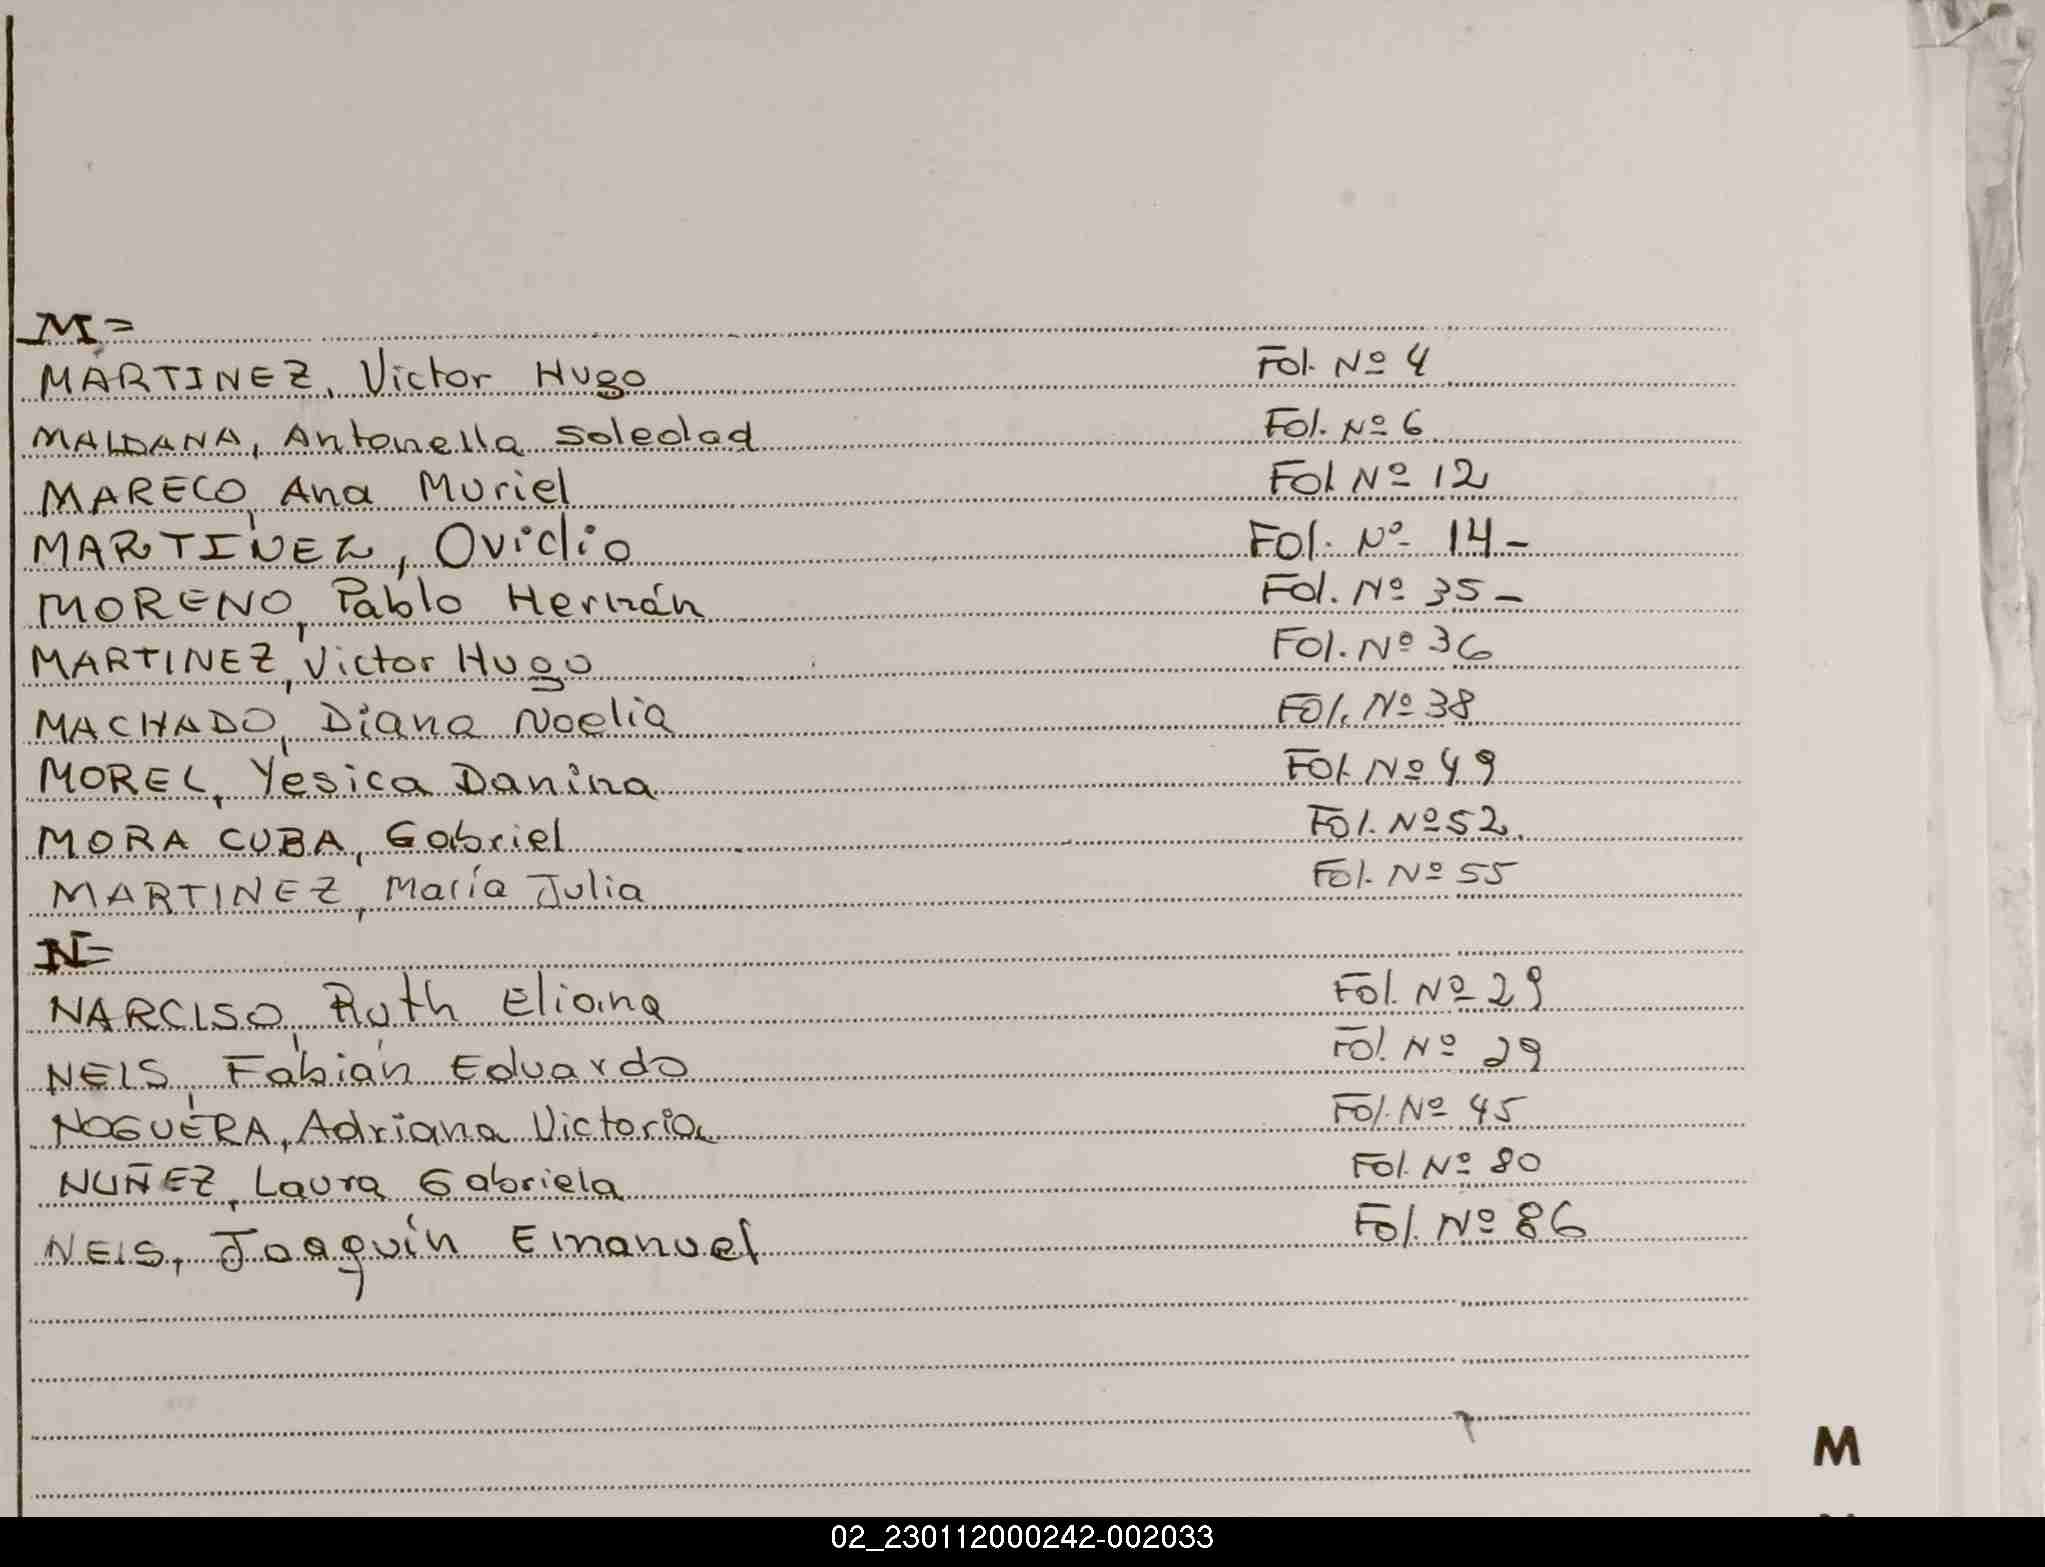 M=
MARTINEZ, Victor Hugo Fol. Nº 4
MALDANA, Antonella Soledad Fol. Nº 6
MARECO, Ana Muriel Fol Nº 12
MARTINEZ, Ovidio Fol. Nº 14-
MORENO, Pablo Hernán Fol. Nº 35-
MARTINEZ, Victor Hugo Fol. Nº 36
MACHADO, Diana Noelia Fol. Nº 38
MOREL, Yesica Danina Fol. Nº 49
MORA CUBA, Gabriel Fol. Nº 52.
MARTINEZ, María Julia Fol. Nº 55
N=
NARCISO, Ruth Eliana Fol. Nº 29
NEIS, Fabián Eduardo Fol. Nº 29
NOGUERA, Adriana Victoria Fol. Nº 45
NUÑEZ, Laura Gabriela Fol. Nº 80
NEIS, Joaquín Emanuel Fol. Nº 86
M
02_230112000242-002033